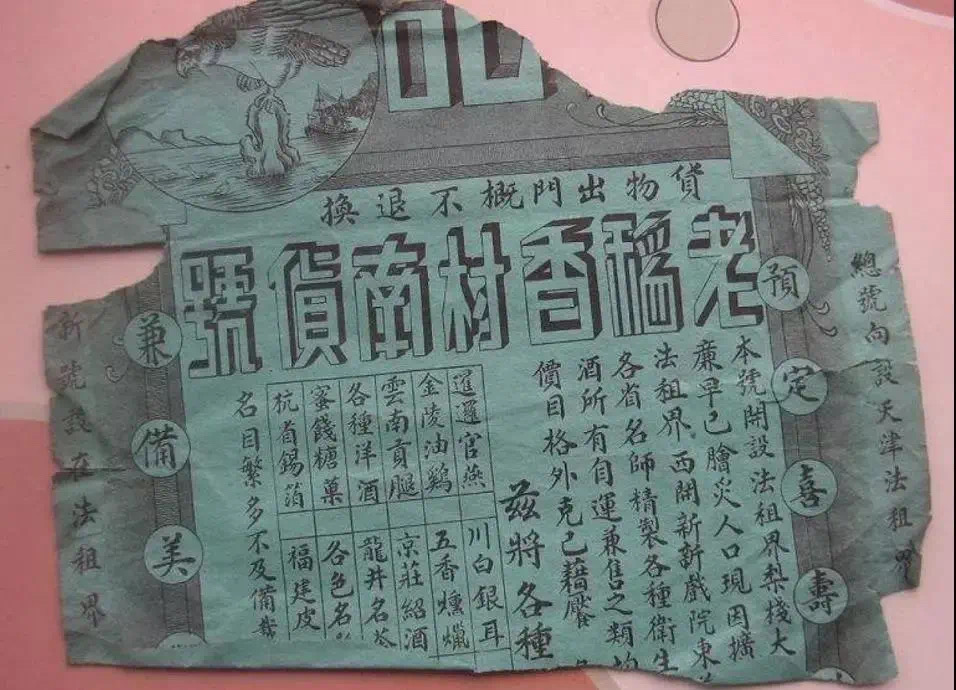 貨物出門概不退換
老稲香村南貨號
總號向設天津法租界
預定喜壽
本號開設法租界梨棧大
廉早已膾炙人口現因擴
法租界西開新新戲院東
各省名師精製各種衛生
酒所有自運兼售之類均
價目格外克己藉饜
茲將各種
暹邏官燕
川白銀耳
金陵油鷄
五香燻臘
雲南貢腿
京莊紹酒
各種洋酒
龍井名茶
蜜餞糖菓
各色名
杭省錫箔
福建皮
名目繁多不及備載
兼備美
新號設在法租界